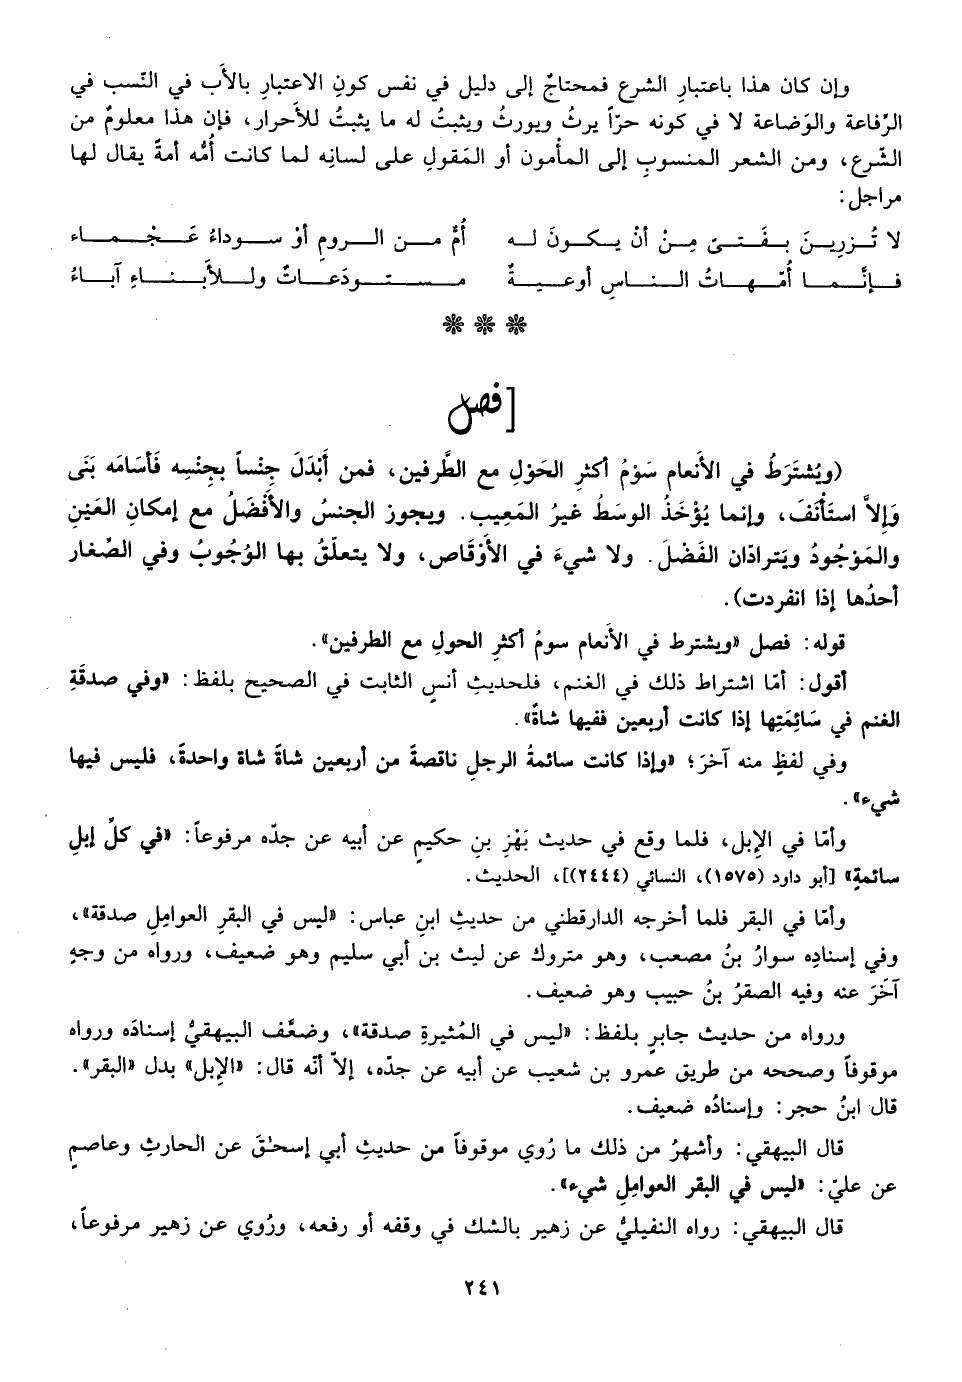 وإن كان هذا باعتبارِ الشرع فمحتاجٌ إلى دليل في نفس كونِ الاعتبارِ بالأَب في النّسب في
الرِّفاعة والوَضاعة لا في كونه حرّاً يرثُ ويورثُ ويثبتُ له ما يثبتُ للأَحرار، فإن هذا معلومٌ من
الشّرع، ومن الشعر المنسوبِ إلى المأمون أو المَقولِ على لسانِه لما كانت أُمُّه أمةً يقال لها
مراجل:
لا تُـزرِيـنَ بـفَـتـىً مِـنْ أنْ يـكـونَ لـه أُمٌّ مـن الـرومِ أوْ سـوداءُ عَـجْـمـاء
فـإنَّـمـا أُمّـهـاتُ الـنـاسِ أوعـيـةٌ مـسـتـودَعـاتٌ ولـلأَبـنـاءِ آبـاءُ
❊ ❊ ❊
[فصل
(ويُشتَرَطُ في الأَنعام سَوْمُ أكثرِ الحَوْلِ مع الطَّرفين، فمن أَبْدَلَ جِنساً بجِنسِه فَأسَامَه بَنَى
وَإلاَّ استَأْنَفَ، وإنما يُؤْخَذُ الوسَطُ غيرُ المَعِيب. ويجوز الجنسُ والأَفْضَلُ مع إمكانِ العَيْنِ
والمَوْجُودُ ويَتراذان الفَضْلَ. ولا شيءَ في الأَوْقَاص، ولا يتعلّقُ بها الوُجُوبُ وفي الصِّغار
أحدُها إذا انفردت).
قوله: فصل «ويشترط في الأنعام سومُ أكثرِ الحولِ مع الطرفين».
أقول: أمّا اشتراط ذلك في الغنم، فلحديث أنسٍ الثابت في الصحيح بلفظ: «وفي صدقَةِ
الغنم في سَائِمَتِها إذا كانت أربعين ففيها شاةٌ».
وفي لفظٍ منه آخرَ؛ «وإذا كانت سائمةُ الرجلِ ناقصةً من أربعين شاةً شاة واحدةً، فليس فيها
شيء».
وأمّا في الإبل، فلما وقع في حديث بَهْزِ بنِ حكيمٍ عن أبيه عن جدّه مرفوعاً: «في كلِّ إبلٍ
سائمةٍ» [أبو داود (١٥٧٥)، النسائي (٢٤٤٤)]، الحديث.
وأمّا في البقر فلما أخرجه الدارقطني من حديثِ ابنِ عباس: «ليس في البقرِ العوامِلِ صدقة»،
وفي إسنادِه سوارُ بنُ مصعب، وهو متروك عن ليث بن أبي سليم وهو ضعيف، ورواه من وجهٍ
آخَرَ عنه وفيه الصقرُ بنُ حبيب وهو ضعيف.
ورواه من حديث جابرٍ بلفظ: «ليس في المُثيرةِ صدقة»، وضعَّف البيهقيُّ إسنادَه ورواه
موقوفاً وصححه من طريق عمرو بن شعيب عن أبيه عن جدّه، إلاّ أنّه قال: «الإبل» بدل «البقر».
قال ابنُ حجر: وإسنادُه ضعيف.
قال البيهقي: وأشهرُ من ذلك ما رُوي موقوفاً من حديثِ أبي إسحٰقَ عن الحارثِ وعاصمٍ
عن عليّ: «ليس في البقر العوامِلِ شيء».
قال البيهقي: رواه النفيليُّ عن زهير بالشك في وقفه أو رفعه، ورُوي عن زهير مرفوعاً،
٢٤١